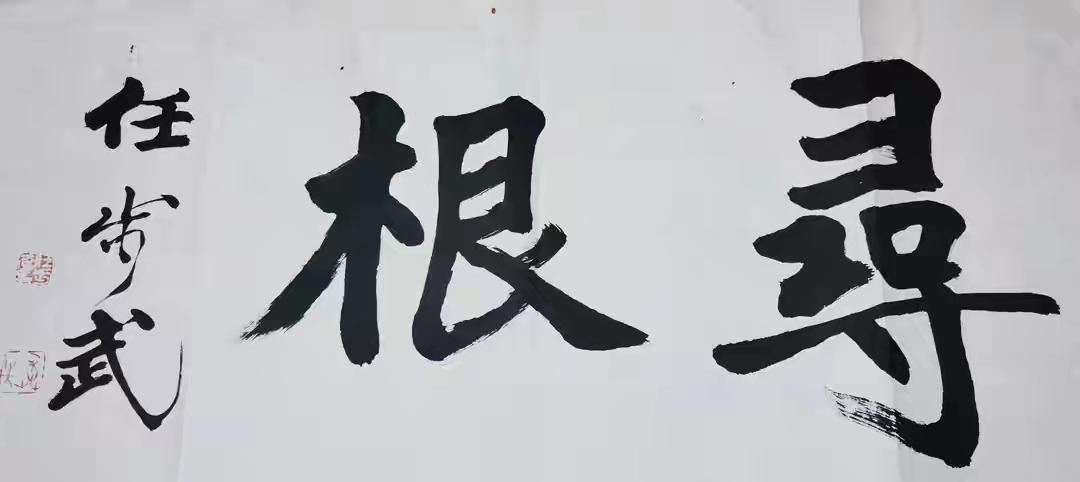 尋根
任步武